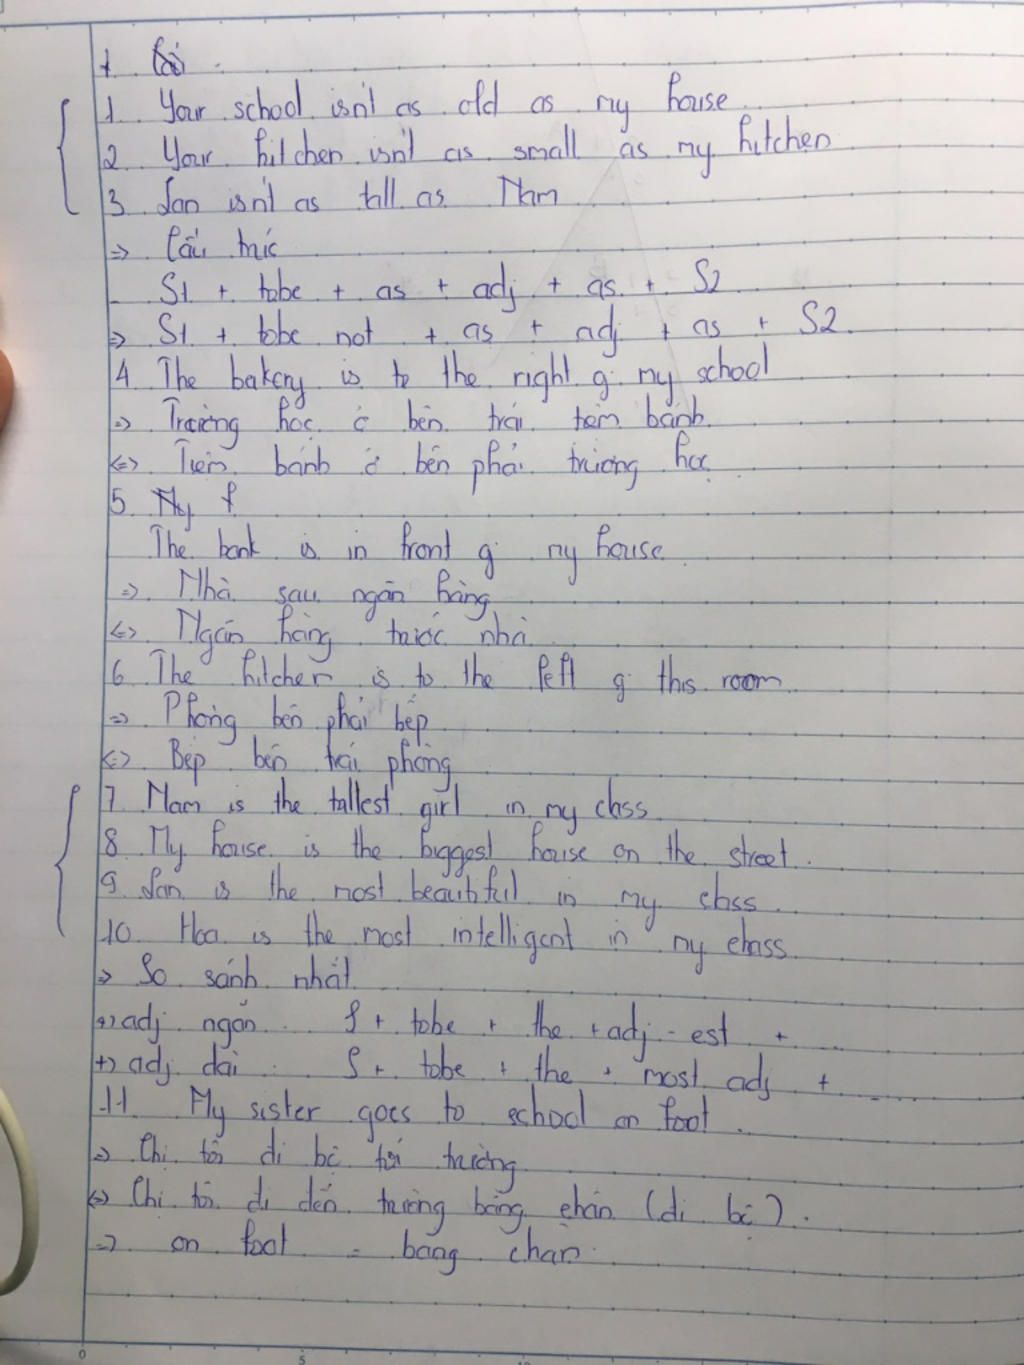 1. Your school isn't as old as my house
2. Your kitchen isn't as small as my kitchen
3. Lan isn't as tall as Nam
=> Cấu trúc
S1 + tobe + as + adj + as + S2
=> S1 + tobe not + as + adj + as + S2.
4. The bakery is to the right of my school
=> Trường học ở bên trái tiệm bánh.
<=> Tiệm bánh ở bên phải trường học
5. My
The bank is in front of my house.
=> Nhà sau ngân hàng
<=> Ngân hàng trước nhà
6. The kitchen is to the left of this room
=> Phòng bên phải bếp
<=> Bếp bên trái phòng
7. Nam is the tallest girl in my class
8. My house is the biggest house on the street.
9. Lan is the most beautiful in my class.
10. Hoa is the most intelligent in my class.
=> So sánh nhất
+) adj ngắn S + tobe + the + adj - est + ...
+) adj dài : S + tobe + the + most adj + ......
11. My sister goes to school on foot.
=> Chị tôi đi bộ tới trường
<=> Chị tôi đi đến trường bằng chân (đi bộ).
=> on foot = bang chan.